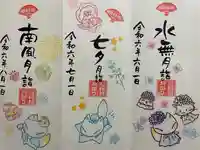 水無月詣
令和六年六月一日
七夕月詣
令和六年七月一日
南風月詣
令和六年八月一日